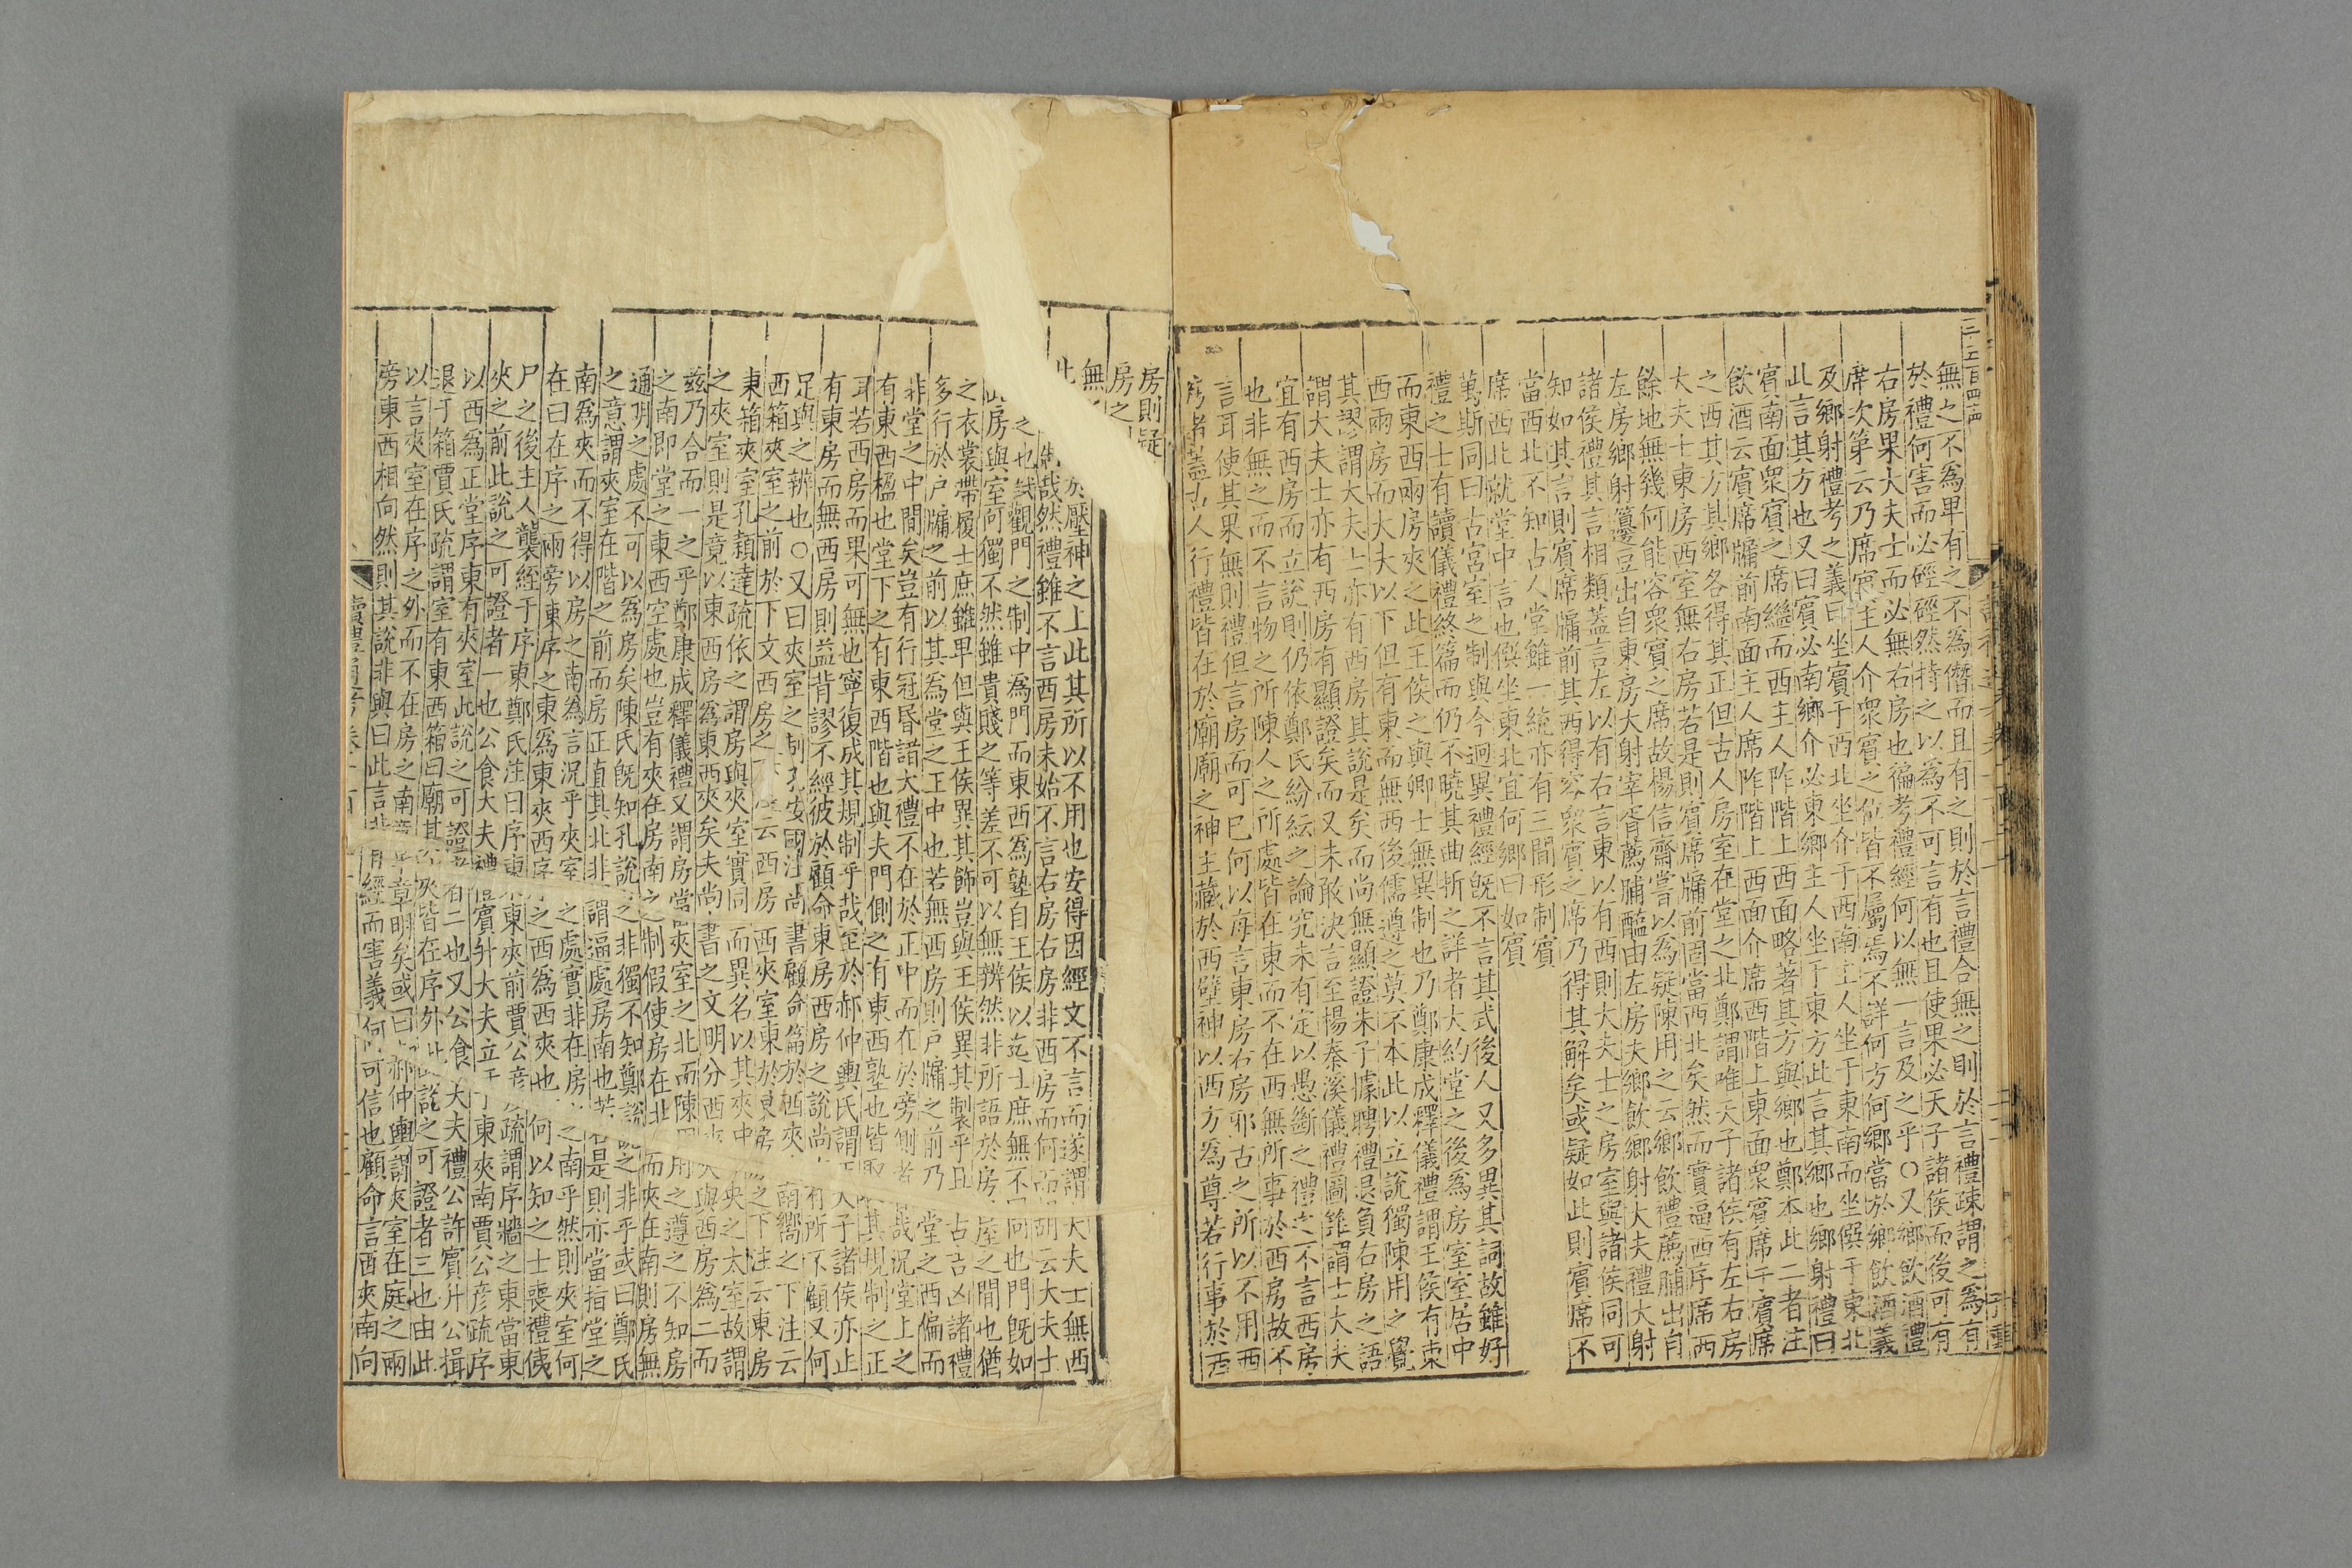 無之不爲卑有之不爲僭而且有之則於言禮合無之則於言禮疎謂之爲有
於禮何害而必硜硜然持之以爲不可言有也且使果必天子諸侯而後可有
右房果大夫士而必無右房也徧考禮經何以無一言及之乎〇又鄉飲酒禮
席次第云乃席賓主人介衆賓之位皆不屬焉不詳何方何鄉當於鄉飲酒義
及鄉射禮考之義曰坐賓于西北坐介于西南主人坐于東南而坐僎于東北
此言其方也又曰賓必南鄉介必東鄉主人坐于東方此言其鄉也鄉射禮曰
賓南面衆賓之席繼而西主人阼階上西面略著其方與鄉也鄭本此二者注
飲酒云賓席牖前南面主人席阼階上西面介席西階上東面衆賓席于賓席
之西其方其鄉各得其正但古人房室在堂之北鄭謂唯天子諸侯有左右房
大夫士東房西室無右房若是則賓席牖前固當西北矣然而賓逼西序席西
餘地無幾何能容衆賓之席故楊信齋嘗以爲疑陳用之云鄉飲禮薦脯出自
左房鄉射籩豆出自東房大射宰胥薦脯醢由左房夫鄉飲鄉射大夫禮大射
諸侯禮其言相類蓋言左以有右言東以有西則大夫士之房室與諸侯同可
知如其言則賓席牖前其西得容衆賓之席乃得其解矣或疑如此則賓席不
當西北不知古人堂雖一統亦有三間形制賓
席西北就堂中言也僎坐東北宜何鄉曰如賓
萬斯同曰古宮室之制與今迥異禮經旣不言其式後人又多異其詞故雖好
禮之士有讀儀禮終篇而仍不曉其曲折之詳者大約堂之後爲房室室居中
而東西兩房夾之此王侯之與卿士無異制也乃鄭康成釋儀禮謂王侯有東
西兩房而大夫以下但有東而無西後儒遵之莫不本此以立說獨陳用之覺
其謬謂大夫士亦有西房其說是矣而尚無顯證朱子據聘禮退負右房之語
謂大夫士亦有西房有顯證矣而又未敢決言至楊秦溪儀禮圖雖謂士大夫
宜有西房而立說則仍依鄭氏紛紜之論究未有定以愚斷之禮之不言西房
也非無之而不言物之所陳人之所處皆在東而不在西無所事於西房故不
言耳使其果無則禮但言房而可已何以每言東房右房邪古之所以不用西
房者蓋古人行禮皆在於廟廟之神主藏於西壁神以西方爲尊若行事於西
房則疑
於壓神之上此其所以不用也安得因經文不言而遂謂大夫士無西
哉然禮雖不言西房未始不言右房右房非西房而何而胡云大夫士
之也試觀門之制中爲門而東西爲塾自王侯以迄士庶無不同也門旣如
此房與室何獨不然雖貴賤之等差不可以無辨然非所語於房屋之間也猶
之衣裳帶履士庶雖卑但與王侯異其飾豈與王侯異其製乎且古吉凶諸禮
多行於戶牖之前以其爲堂之正中也若無西房則戶牖之前乃堂之西偏而
非堂之中間矣豈有行冠昏諸大禮不在於正中而在於旁側者哉況堂上之
有東西楹也堂下之有東西階也與夫門側之有東西塾也皆取其規制之正
耳若西房而果可無也寧復成其規制乎哉至於郝仲輿氏謂天子諸侯亦止
有東房而無西房則益背謬不經彼於顧命東房西房之說尚有所不顧又何
足與之辨也〇又曰夾室之制孔安國注尚書顧命篇於西夾南嚮之下注云
西箱夾室之前於下文西房之下注云西房西夾室東於東房之下注云東房
東箱夾室孔穎達疏依之謂房與夾室實同而異名以其夾中央之太室故謂
之夾室則是竟以東西房爲東西夾矣夫尚書之文明分西夾與西房爲二而
茲乃合而一之乎鄭康成釋儀禮又謂房當夾室之北而陳用之遵之不知房
之南即堂之東西空處也豈有夾在房南之制假使房在北而夾在南則房無
通明之處不可以爲房矣陳氏旣知孔說之非獨不知鄭說之非乎或曰鄭氏
之意謂夾室在階之前而房正直其北非謂逼處房南也若是則亦當指堂之
南爲夾而不得以房之南爲言況乎夾室之處實非在房之南乎然則夾室何
在曰在序之兩旁東序之東爲東夾西序之西爲西夾也何以知之士喪禮俠
尸之後主人襲絰于序東鄭氏注曰序東東夾前賈公彥疏謂序牆之東當東
夾之前此說之可證者一也公食大夫禮賓升大夫立于東夾南賈公彥疏序
以西爲正堂序東有夾室此說之可證者二也又公食大夫禮公許賓升公揖
退于箱賈氏疏謂室有東西箱曰廟其夾皆在序外此說之可證者三也由此
以言夾室在序之外而不在房之南章章明矣或曰郝仲輿謂夾室在庭之兩
旁東西相向然則其說非與曰此言背經而害義何可信也顧命言酉夾南向